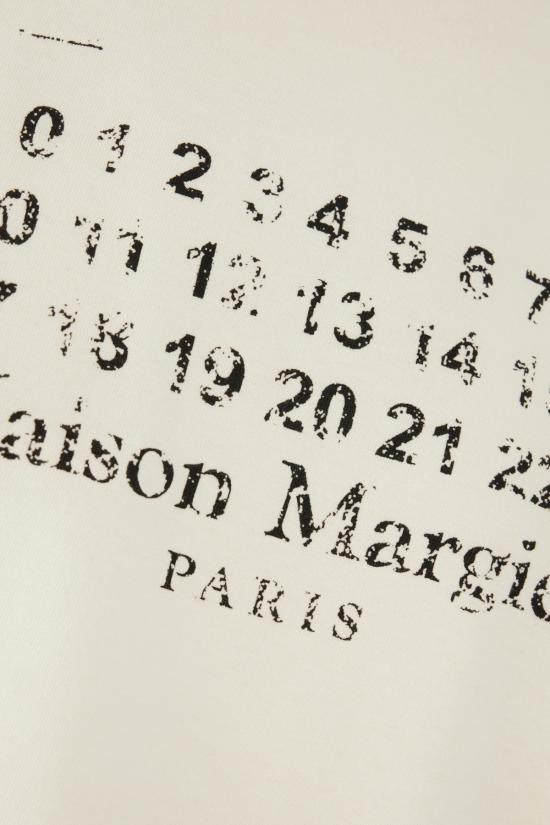 0 1 2 3 4 5 6 7
0 11 12 13 14 1
7 18 19 20 21 22
aison Margie
PARIS